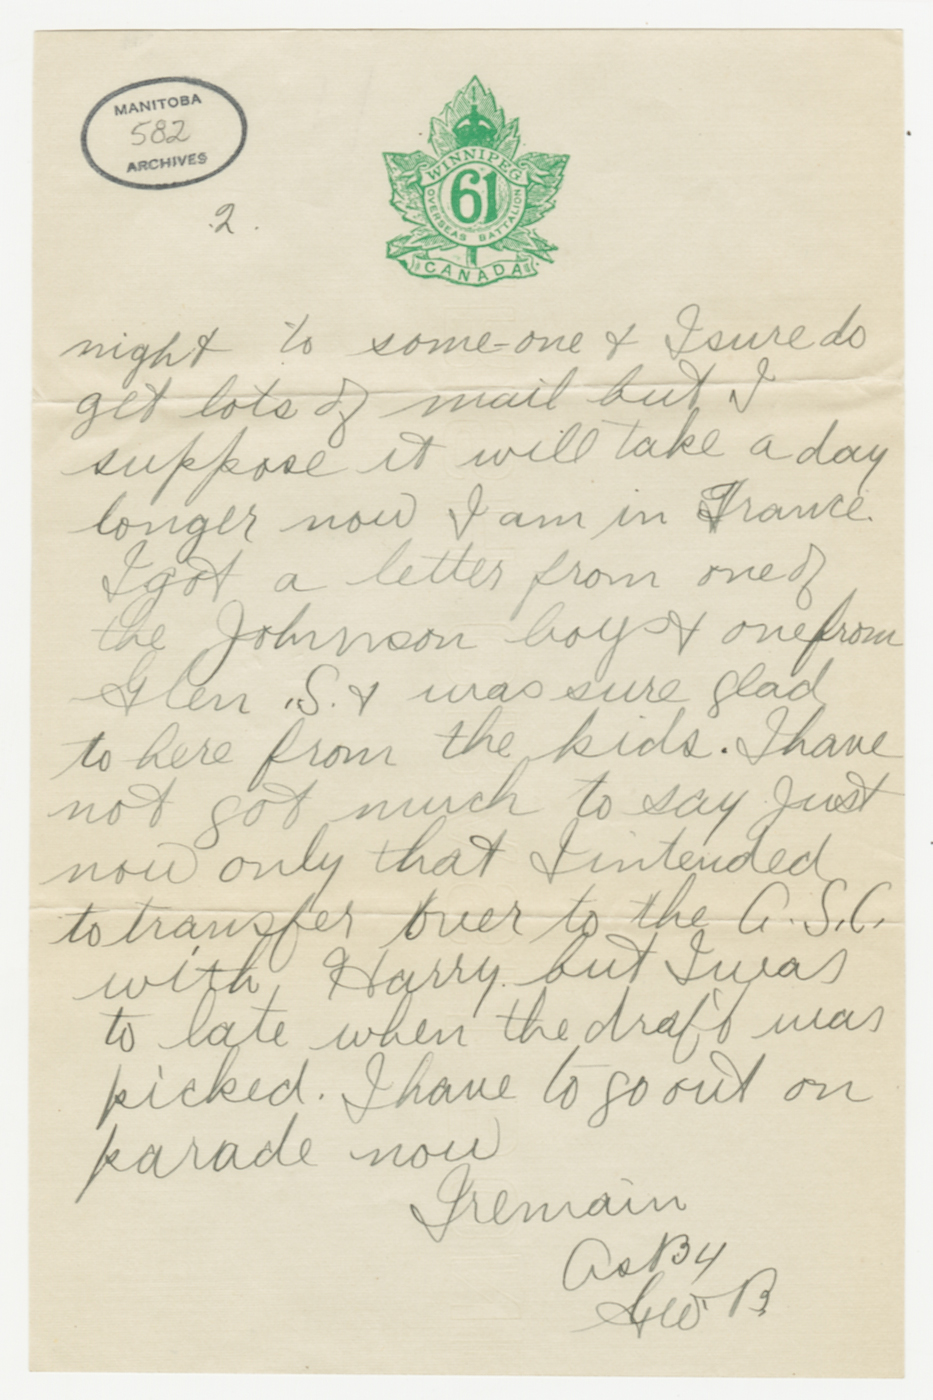 MANITOBA
582
ARCHIVES
WINNIPEG
61
OVERSEAS BATTALION
CANADA
.2.
night to some-one & I sure do
get lots of mail but I
suppose it will take a day
longer now I am in France.
I got a letter from one of
the Johnnson boys & one from
Glen .S. & was sure glad
to here from the kids. I have
not got much to say Just
now only that I intended
to transfer over to the A.S.C.
with Harry but I was
to late when the draft was
picked. I have to go out on
parade now
I remain
As B4
Geo B